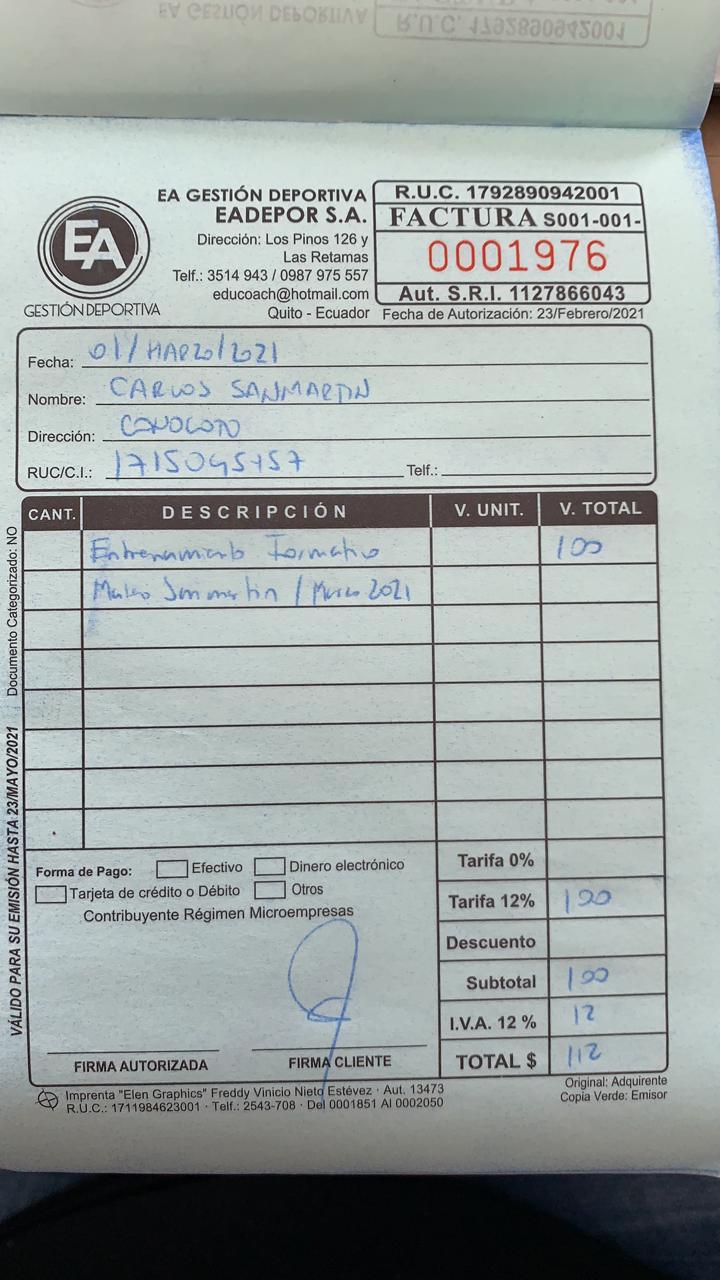 EA GESTIÓN DEPORTIVA
R.U.C. 1792890942001
EA
GESTIÓN DEPORTIVA
EA GESTIÓN DEPORTIVA
EADEPOR S.A.
Dirección: Los Pinos 126 y
Las Retamas
Telf.: 3514 943 / 0987 975 557
educoach@hotmail.com
Quito - Ecuador
R.U.C. 1792890942001
FACTURA S001-001-
0001976
Aut. S.R.I. 1127866043
Fecha de Autorización: 23/Febrero/2021
Fecha: 01/MARZO/2021
Nombre: CARLOS SANMARTIN
Dirección: CONOCOTO
RUC/C.I.: Telf.:
CANT. DESCRIPCIÓN V. UNIT. V. TOTAL
Entrenamiento Formativo 100
Mateo Sanmartin / Marzo 2021
Forma de Pago: Efectivo Dinero electrónico
Tarjeta de crédito o Débito Otros
Contribuyente Régimen Microempresas
Tarifa 0%
Tarifa 12% 100
Descuento
Subtotal 100
I.V.A. 12 % 12
TOTAL $ 112
FIRMA AUTORIZADA FIRMA CLIENTE
Imprenta "Elen Graphics" Freddy Vinicio Nieto Estévez · Aut. 13473
R.U.C.: 1711984623001 · Telf.: 2543-708 · Del 0001851 Al 0002050
Original: Adquirente
Copia Verde: Emisor
VÁLIDO PARA SU EMISIÓN HASTA 23/MAYO/2021 Documento Categorizado: NO